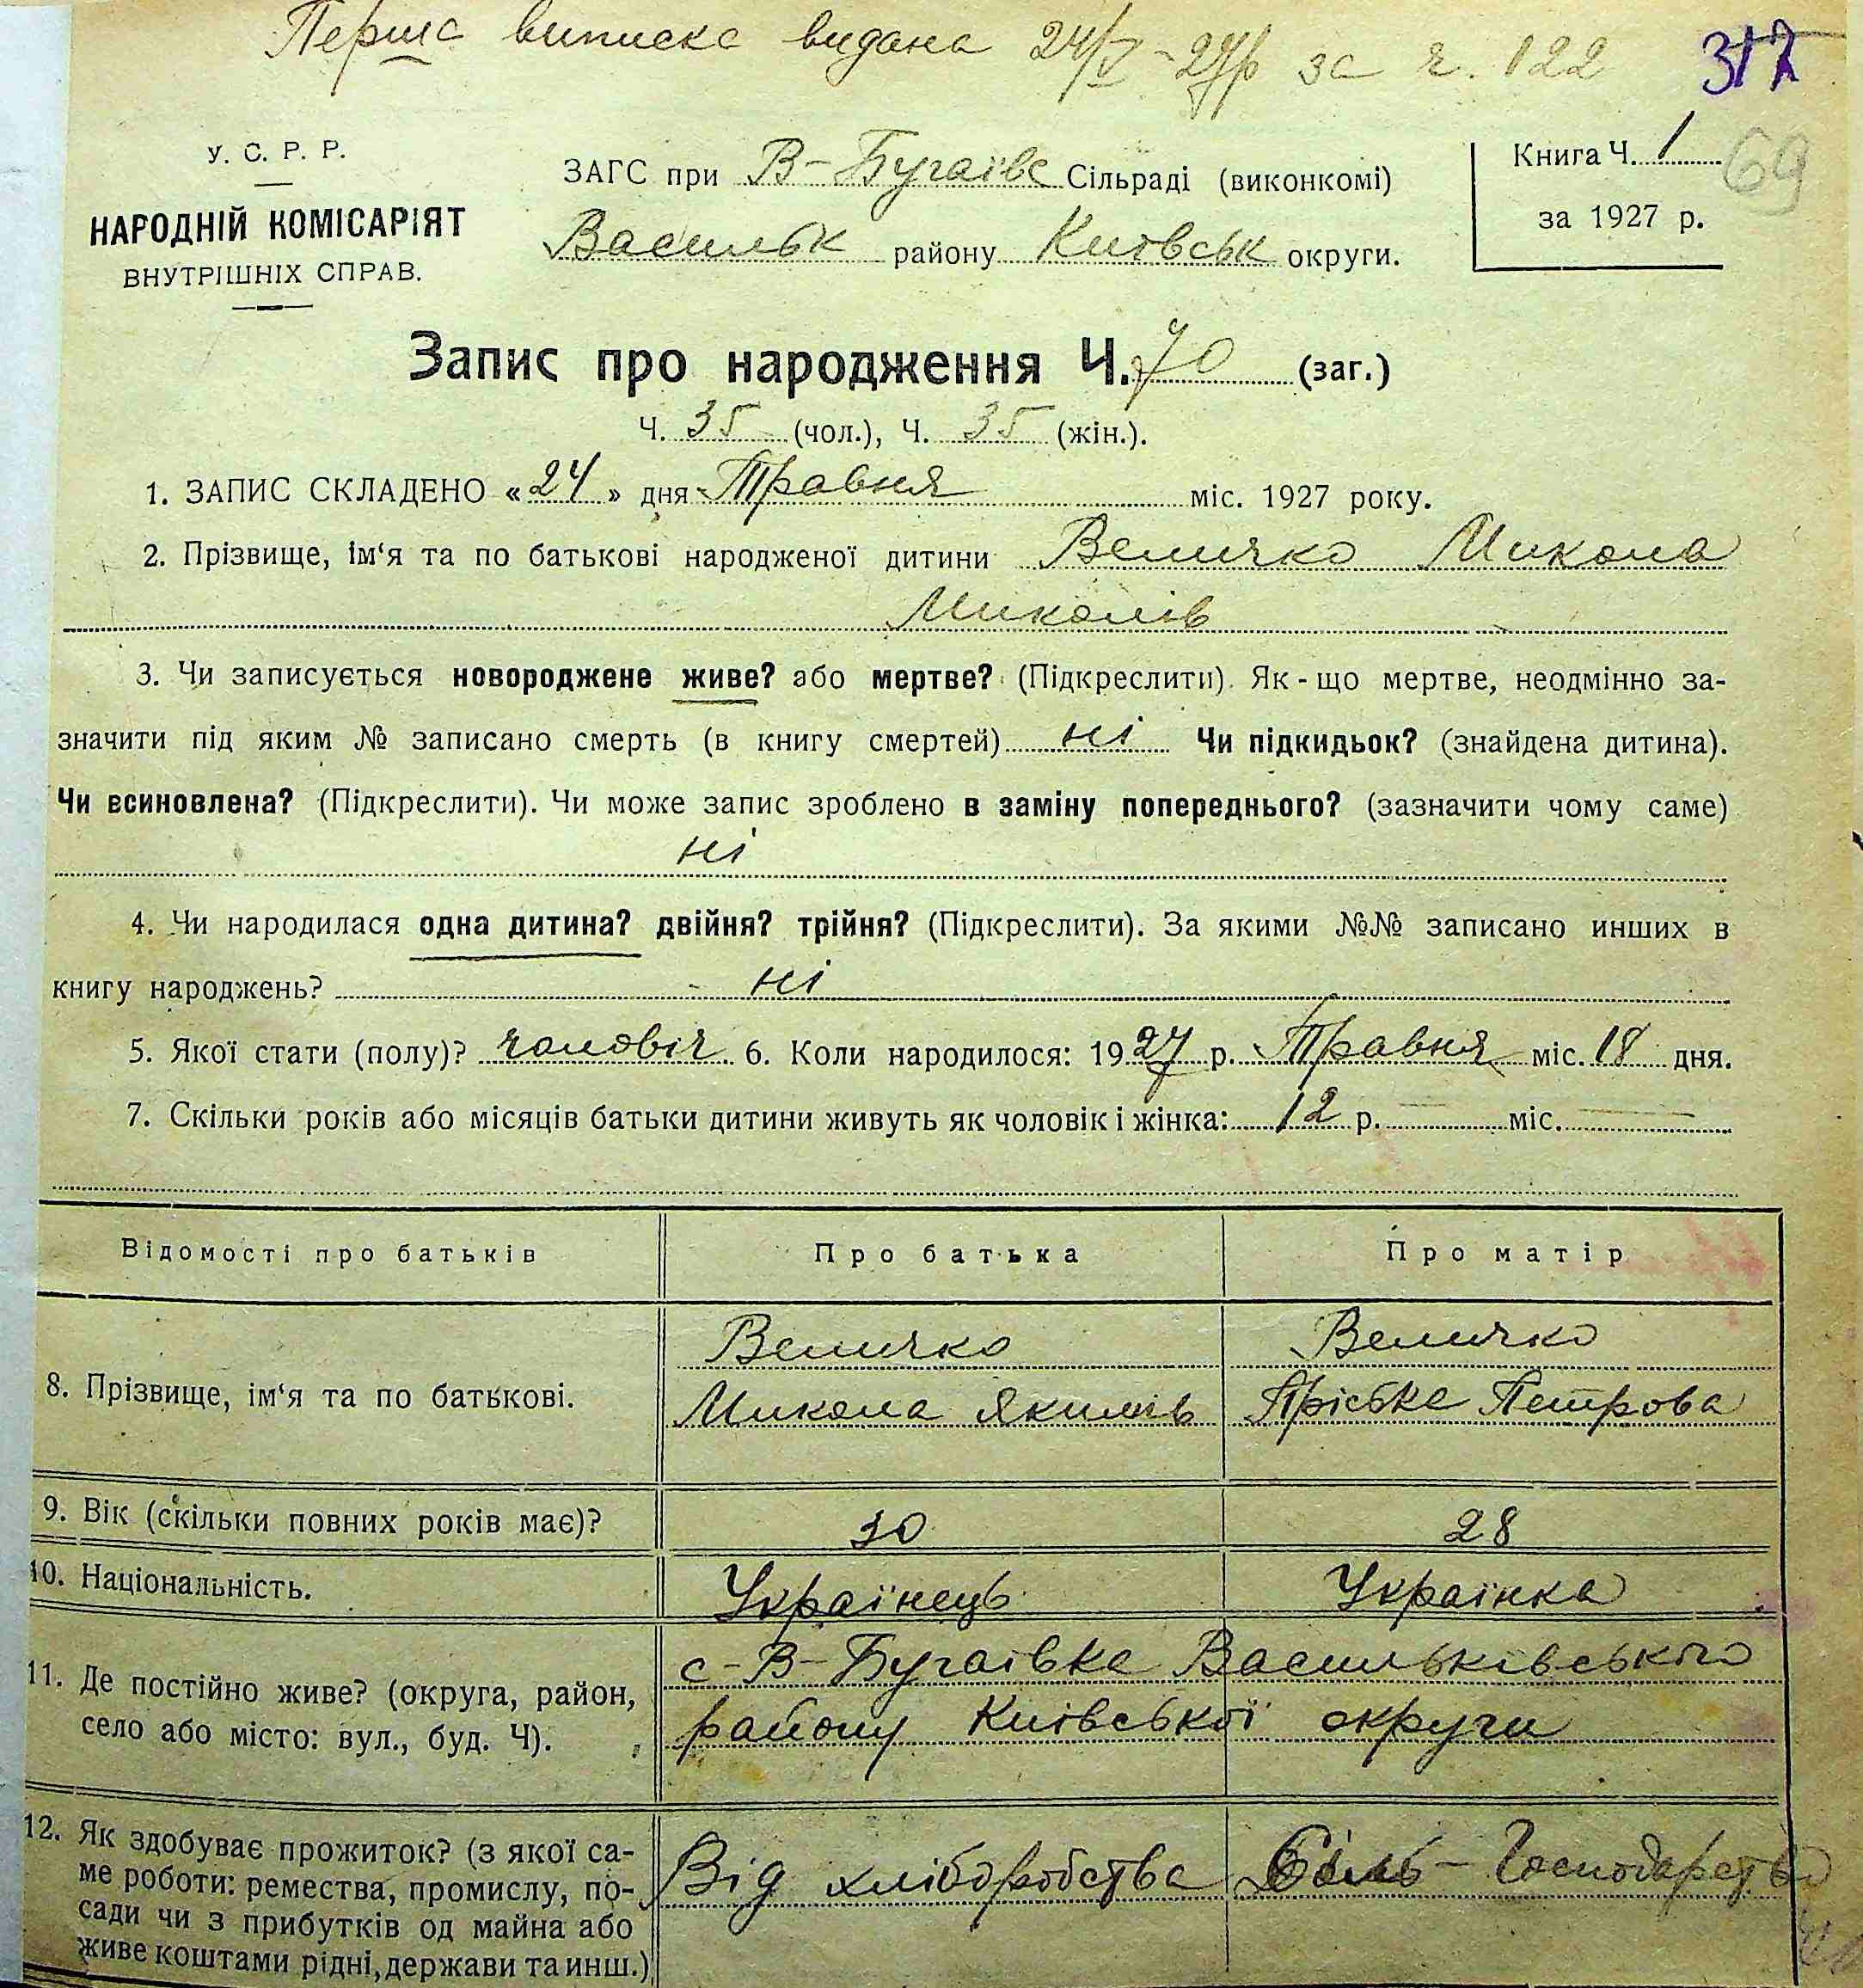 Перша виписка видана 24/V-27р за ч. 122
317
У. С. Р. Р.
НАРОДНІЙ КОМІСАРІЯТ
ВНУТРІШНІХ СПРАВ.
ЗАГС при В-Бугаївс Сільраді (виконкомі)
Васильк району Київськ округи.
Книга Ч. 1
69
за 1927 р.
Запис про народження Ч. 70 (заг.)
Ч. 35 (чол.), Ч. 35 (жін.).
1. ЗАПИС СКЛАДЕНО «24» дня Травня міс. 1927 року.
2. Прізвище, ім‘я та по батькові народженої дитини Величко Микола
Миколів
3. Чи записується новороджене живе? або мертве? (Підкреслити). Як-що мертве, неодмінно за-
значити під яким № записано смерть (в книгу смертей) ні Чи підкидьок? (знайдена дитина).
Чи всиновлена? (Підкреслити). Чи може запис зроблено в заміну попереднього? (зазначити чому саме)
ні
4. Чи народилася одна дитина? двійня? трійня? (Підкреслити). За якими №№ записано инших в
книгу народжень? ні
5. Якої стати (полу)? чоловіч 6. Коли народилося: 1927 р. Травня міс. 18 дня.
7. Скільки років або місяців батьки дитини живуть як чоловік і жінка: 12 р. міс.
Відомості про батьків Про батька Про матір
Величко Величко
8. Прізвище, ім‘я та по батькові. Микола Якимів Пріська Петрова
9. Вік (скільки повних років має)? 30 28
10. Національність. Українець Українка
с-В-Бугаівка Васильківського
11. Де постійно живе? (округа, район,
село або місто: вул., буд. Ч). району Київської округи
12. Як здобуває прожиток? (з якої са-
ме роботи: ремества, промислу, по- Від хліборобства Сіль-Господарство
сади чи з прибутків од майна або
живе коштами рідні, держави та инш.)